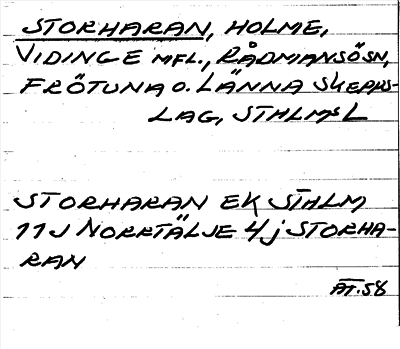 STORHARAN, HOLME,
VIDINGE MFL., RÅDMANSÖSN,
FRÖTUNA O. LÄNNA SKEPPS-
LAG, STHLMS L
STORHARAN EK STHLM
11J NORRTÄLJE 4j STORHA-
RAN
ÄT.58